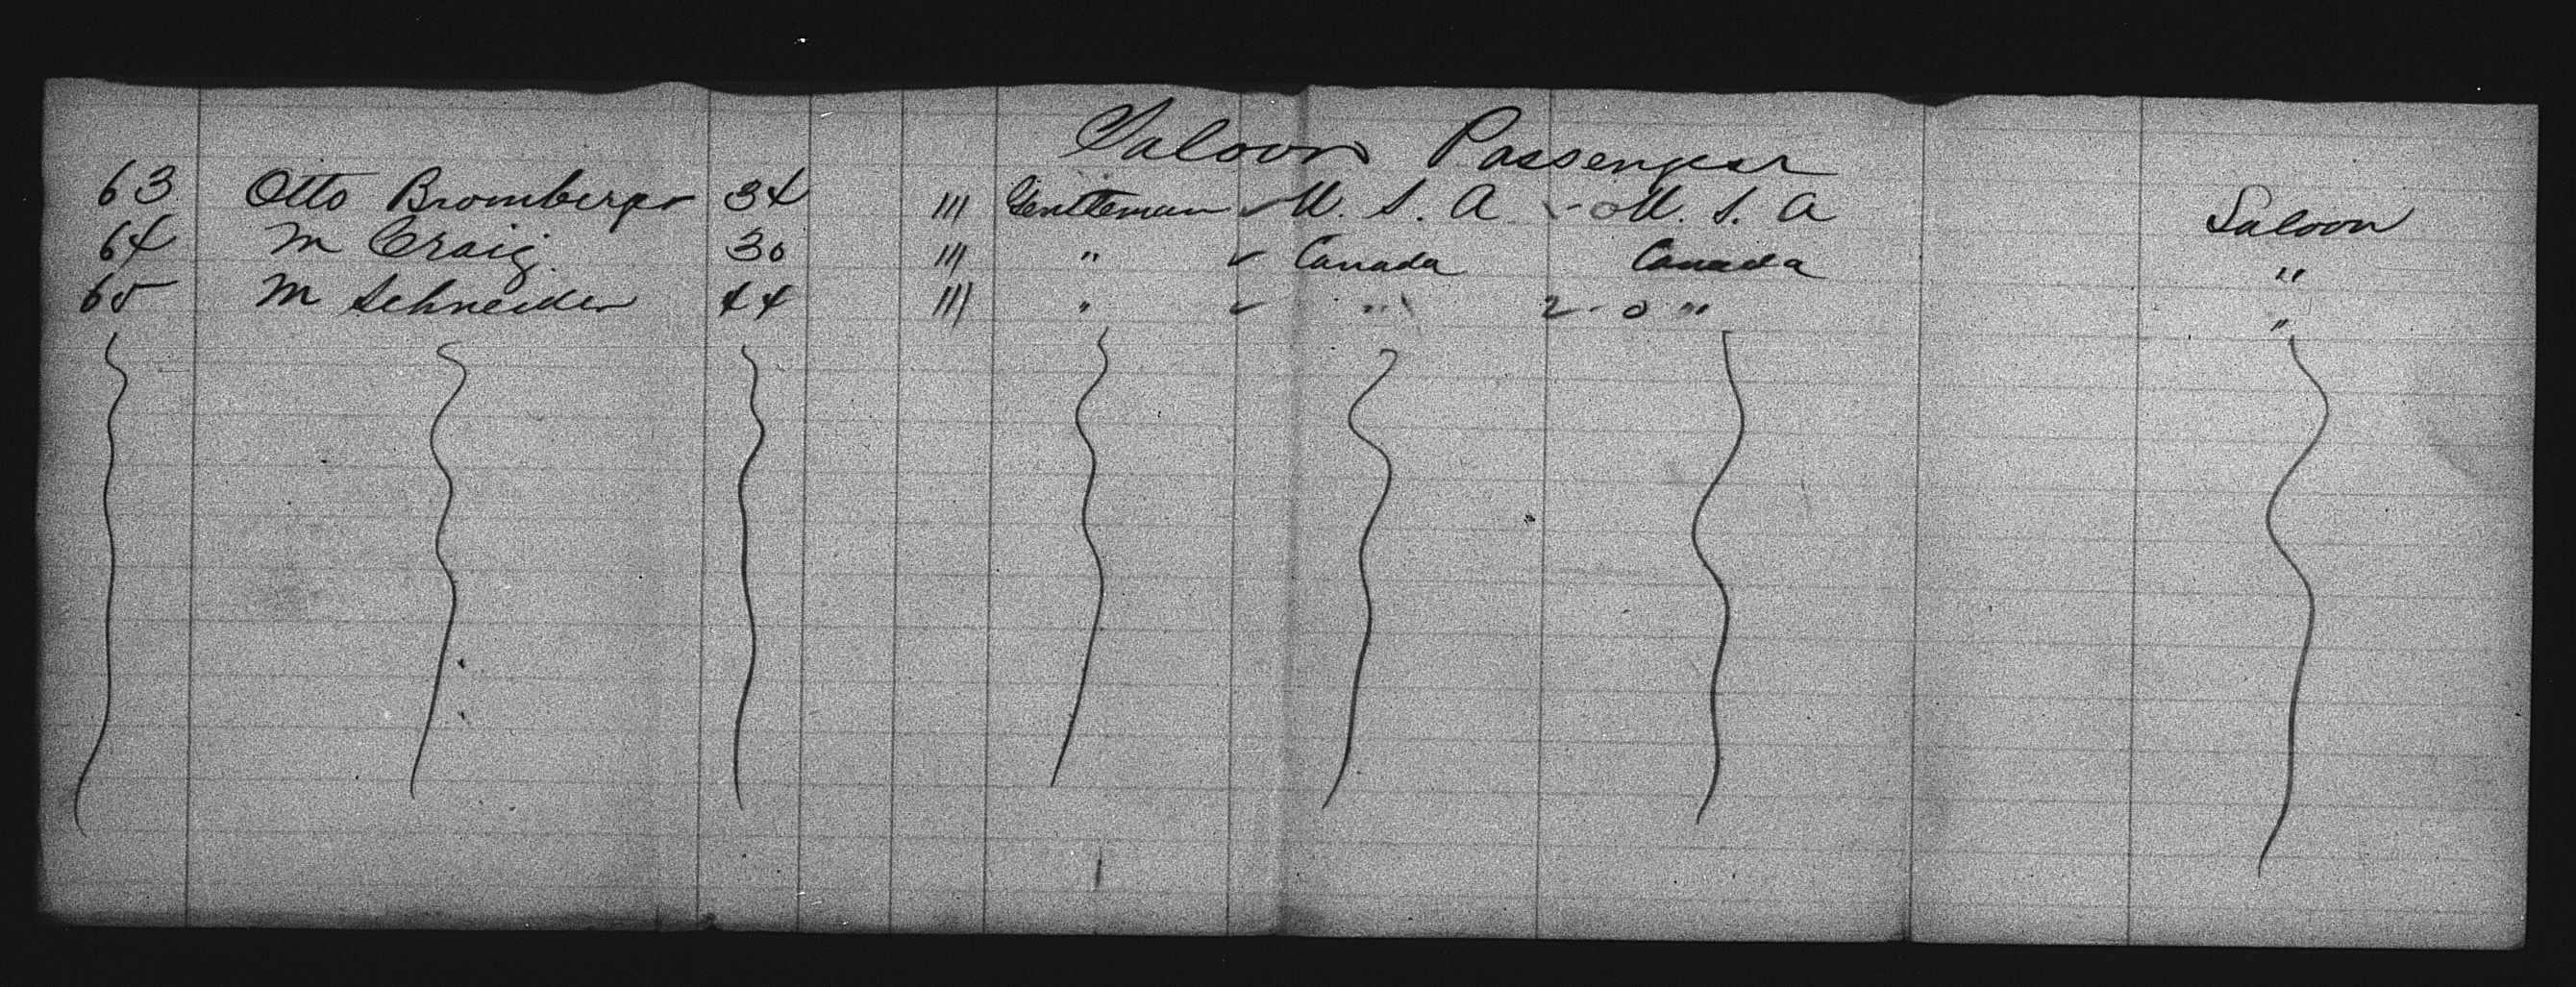 Saloon Passenger
63 Otto Bromberger 34 /// Gentleman ✓ U. S. A - o U. S. A Saloon
64 M Craig 30 /// " ✓ Canada Canada "
65 M Schneider 44 /// " ✓ " 2 - 0 " "